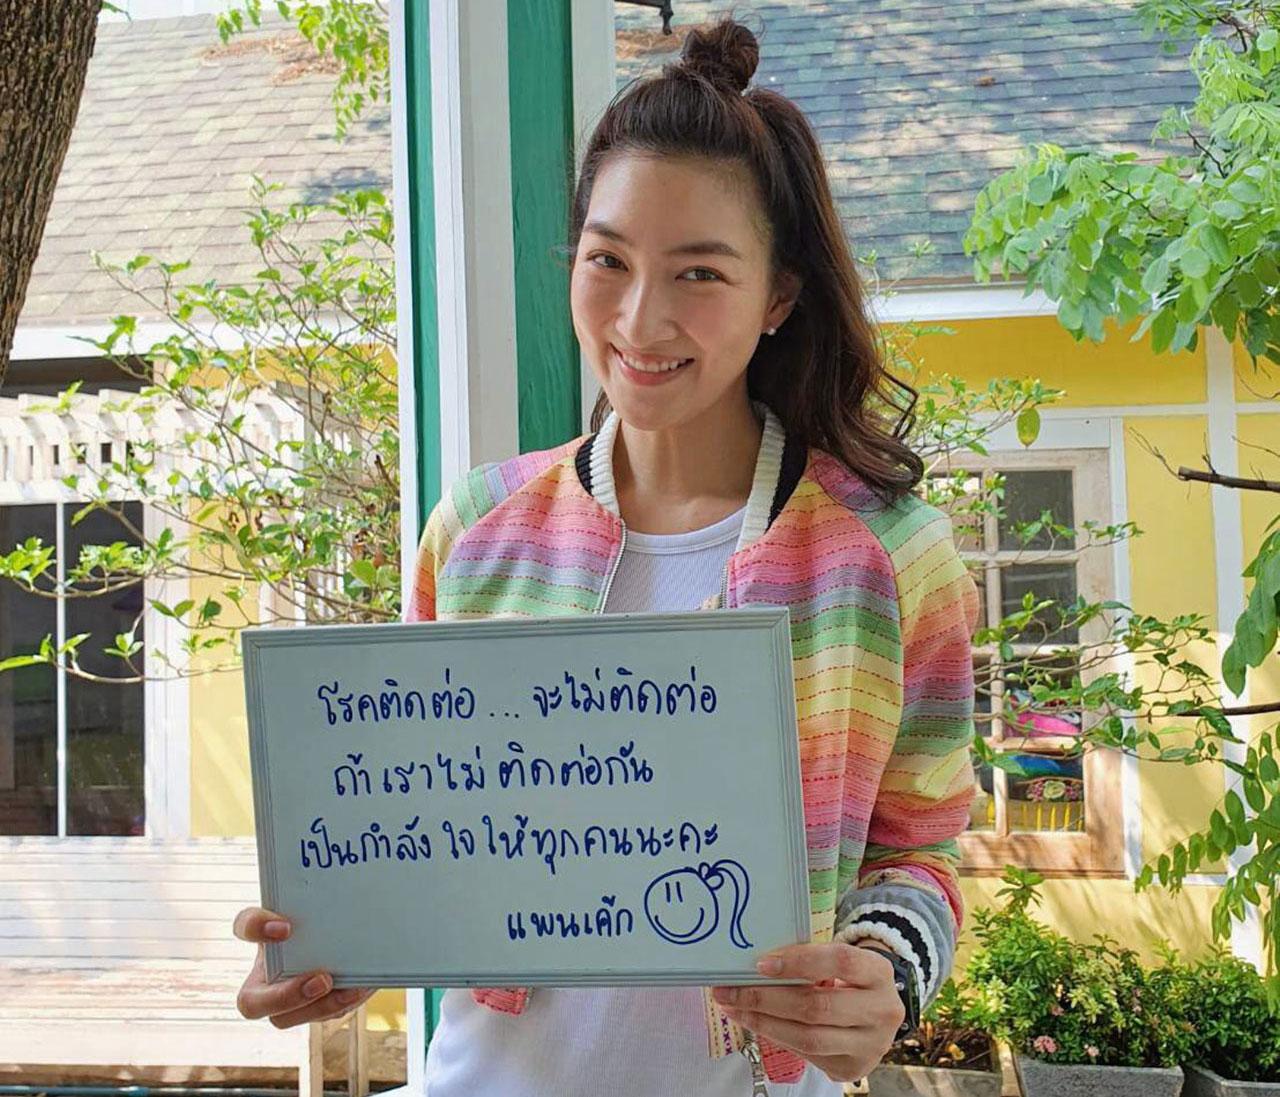 โรคติดต่อ ... จะไม่ติดต่อ
ถ้าเราไม่ติดต่อกัน
เป็นกำลังใจให้ทุกคนนะคะ
แพนเค้ก